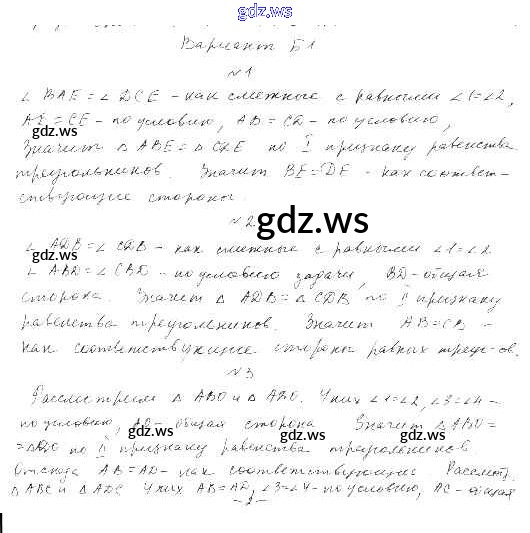 gdz.ws
Вариант Б1
№1
∠ BAE = ∠ DCE - как смежные с равными ∠1=∠2,
AE = CE - по условию, AB = CD - по условию,
gdz.ws
Значит △ ABE = △ CDE по I признаку равенства
треугольников. Значит BE = DE - как соответ-
ствующие стороны.
№2
gdz.ws
∠ ADB = ∠ CDB - как смежные с равными ∠1=∠2
gdz.ws
∠ ABD = ∠ CBD - по условию задачи, BD - общая
сторона. Значит △ ADB = △ CDB по II признаку
равенства треугольников. Значит AB = CB -
как соответствующие стороны равных треуг-ов.
№3
Рассмотрим △ ABO и △ ADO. У них ∠1=∠2, ∠3=∠4 -
по условию, AO - общая сторона Значит △ ABO =
gdz.ws gdz.ws
= △ADO по II признаку равенства треугольников
Отсюда AB = AD - как соответствующие Рассмот.
gdz.ws gdz.ws
△ ABC и △ ADC У них AB = AD, ∠3=∠4 - по условию, AC - общая